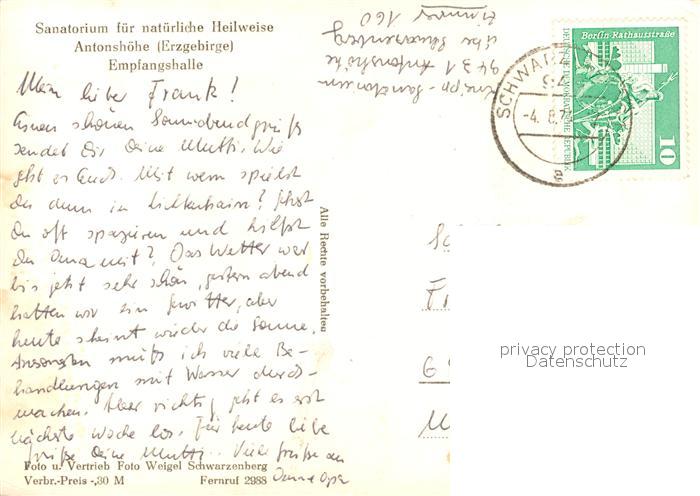 Sanatorium für natürliche Heilweise
Antonshöhe (Erzgebirge)
Empfangshalle
Kneipp-Sanatorium
9431 Antonshöhe
übe Schwarzenberg
Zimmer 160
Berlin Rathausstraße
DEUTSCHE DEMOKRATISCHE REPUBLIK
10
SCHWARZ
-4. 8.
Mein lieber Frank!
Einen schönen Sonnabendgruß
sendet Dir Deine Mutti. Wie
geht es Euch. Mit wem spielst
du denn in Lichtenhain? Gehst
Du oft spazieren und hilfst
Du Oma mit? Das Wetter war
bis jetzt sehr schön, gestern abend
hatten wir ein Gewitter, aber
heute scheint wieder die Sonne.
Ansonsten muß ich viele Be-
handlungen mit Wasser durch-
machen. Aber richtig geht es erst
nächste Woche los. Für heute liebe
Grüße Deine Mutti. Viele Grüße an
Oma u Opa
Alle Rechte vorbehalten
Foto u. Vertrieb Foto Weigel Schwarzenberg
Verbr.-Preis -,30 M Fernruf 2988
privacy protection
Datenschutz